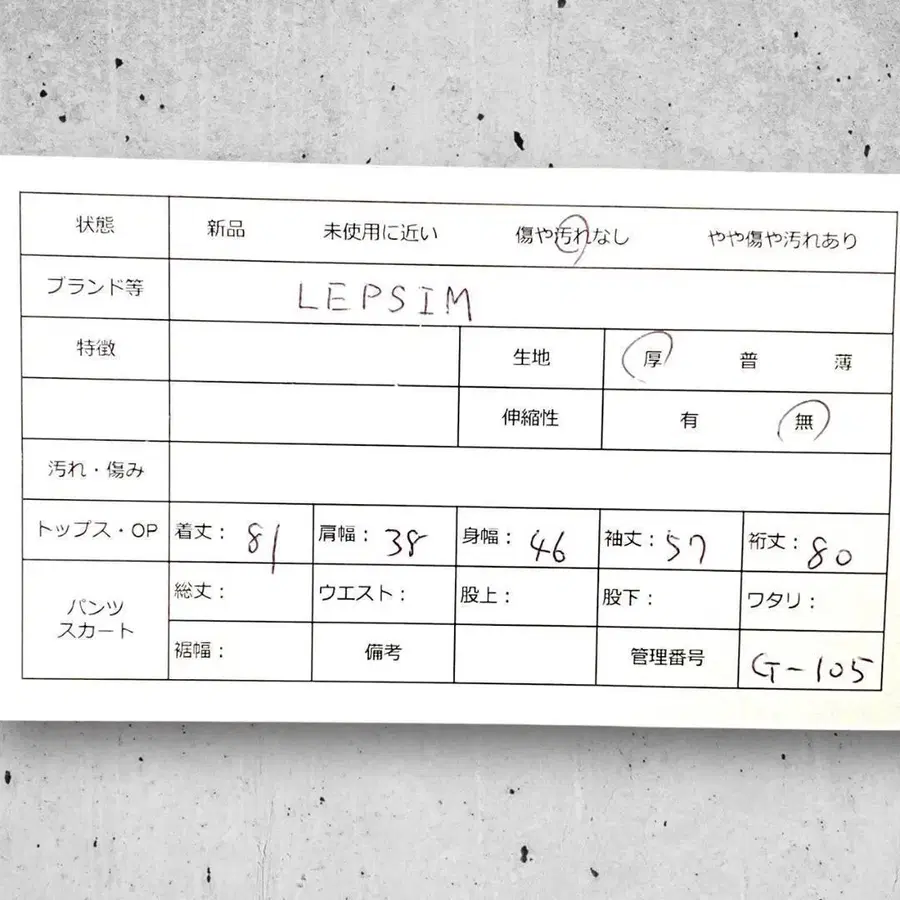 状態 新品 未使用に近い 傷や汚れなし やや傷や汚れあり
ブランド等 LEPSIM
特徴 生地 厚 普 薄
伸縮性 有 無
汚れ・傷み
トップス・OP 着丈: 81 肩幅: 38 身幅: 46 袖丈: 57 裄丈: 80
パンツ
スカート
総丈: ウエスト: 股上: 股下: ワタリ:
裾幅: 備考 管理番号 G-105